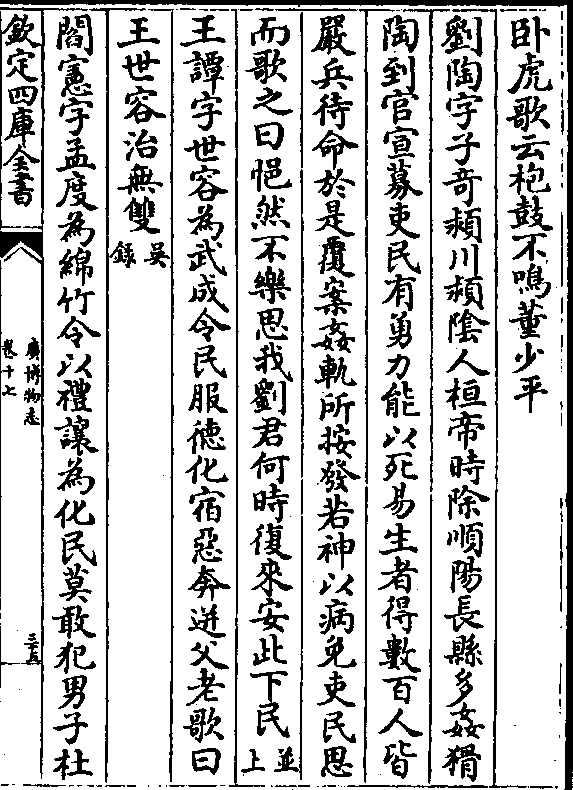 卧虎歌云枹鼓不鳴董少平
劉陶字子竒潁川潁隂人桓帝時除順陽長縣多姦猾
陶到官宣募吏民有勇力能以死易生者得數百人皆
嚴兵待命於是覆案姦軌所按發若神以病免吏民思
而歌之曰悒然不樂思我劉君何時復來安此下民並上
王譚字世容為武成令民服徳化宿惡奔迸父老歌曰
王世容治無雙吳録
閻憲字孟度為綿竹令以禮讓為化民莫敢犯男子杜
欽定四庫全書
廣博物志
卷十七
三十五